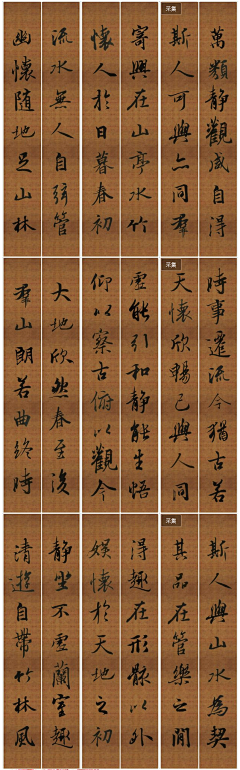 采集
萬類靜觀咸自得
斯人可與亦同羣
寄興在山亭水竹
懷人於日暮春初
流水無人自弦管
幽懷隨地足山林
采集
時事遷流今猶古若
天懷欣暢己與人同
虛能引和靜能生悟
仰以察古俯以觀今
大地欣然春至後
羣山朗若曲終時
采集
斯人與山水為契
其品在管樂之間
得趣在形骸以外
娛懷於天地之初
靜坐不虛蘭室趣
清遊自帶竹林風